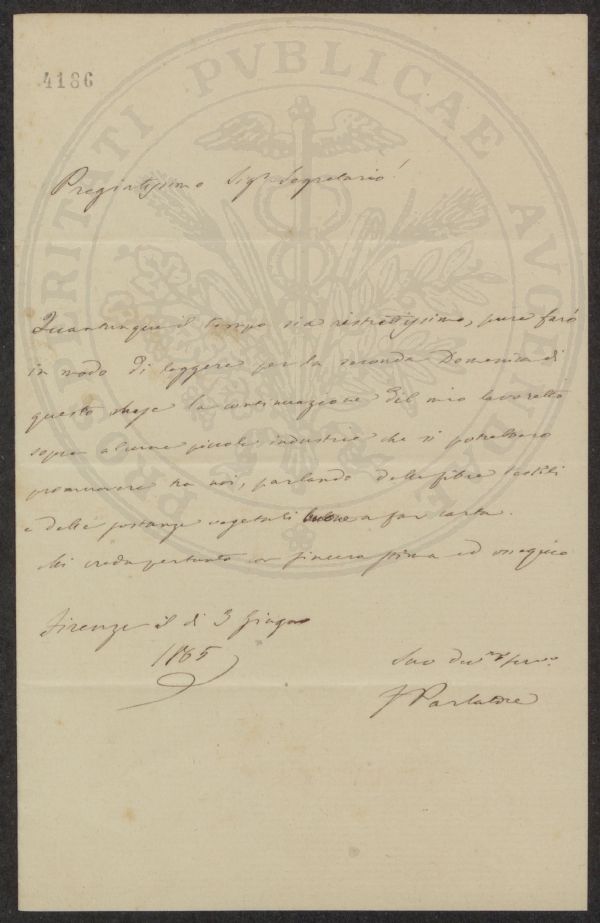 4186
PROSPERITATI PVBLICAE AVGENDAE
Pregiatissimo Sigr Segretario!
Quantunque il tempo sia ristrettissimo, pure farò
in modo di leggere per la seconda Domenica di
questo mese la continuazione del mio lavoretto
sopra alcune piccole industrie che si potrebbero
promuovere tra noi, parlando delle fibre tessili
e delle sostanze vegetali buone a far carta.
Mi creda pertanto con sincera stima ed ossequio
Firenze il dì 3 Giugno
1865
Suo devmo servo
F Parlatore